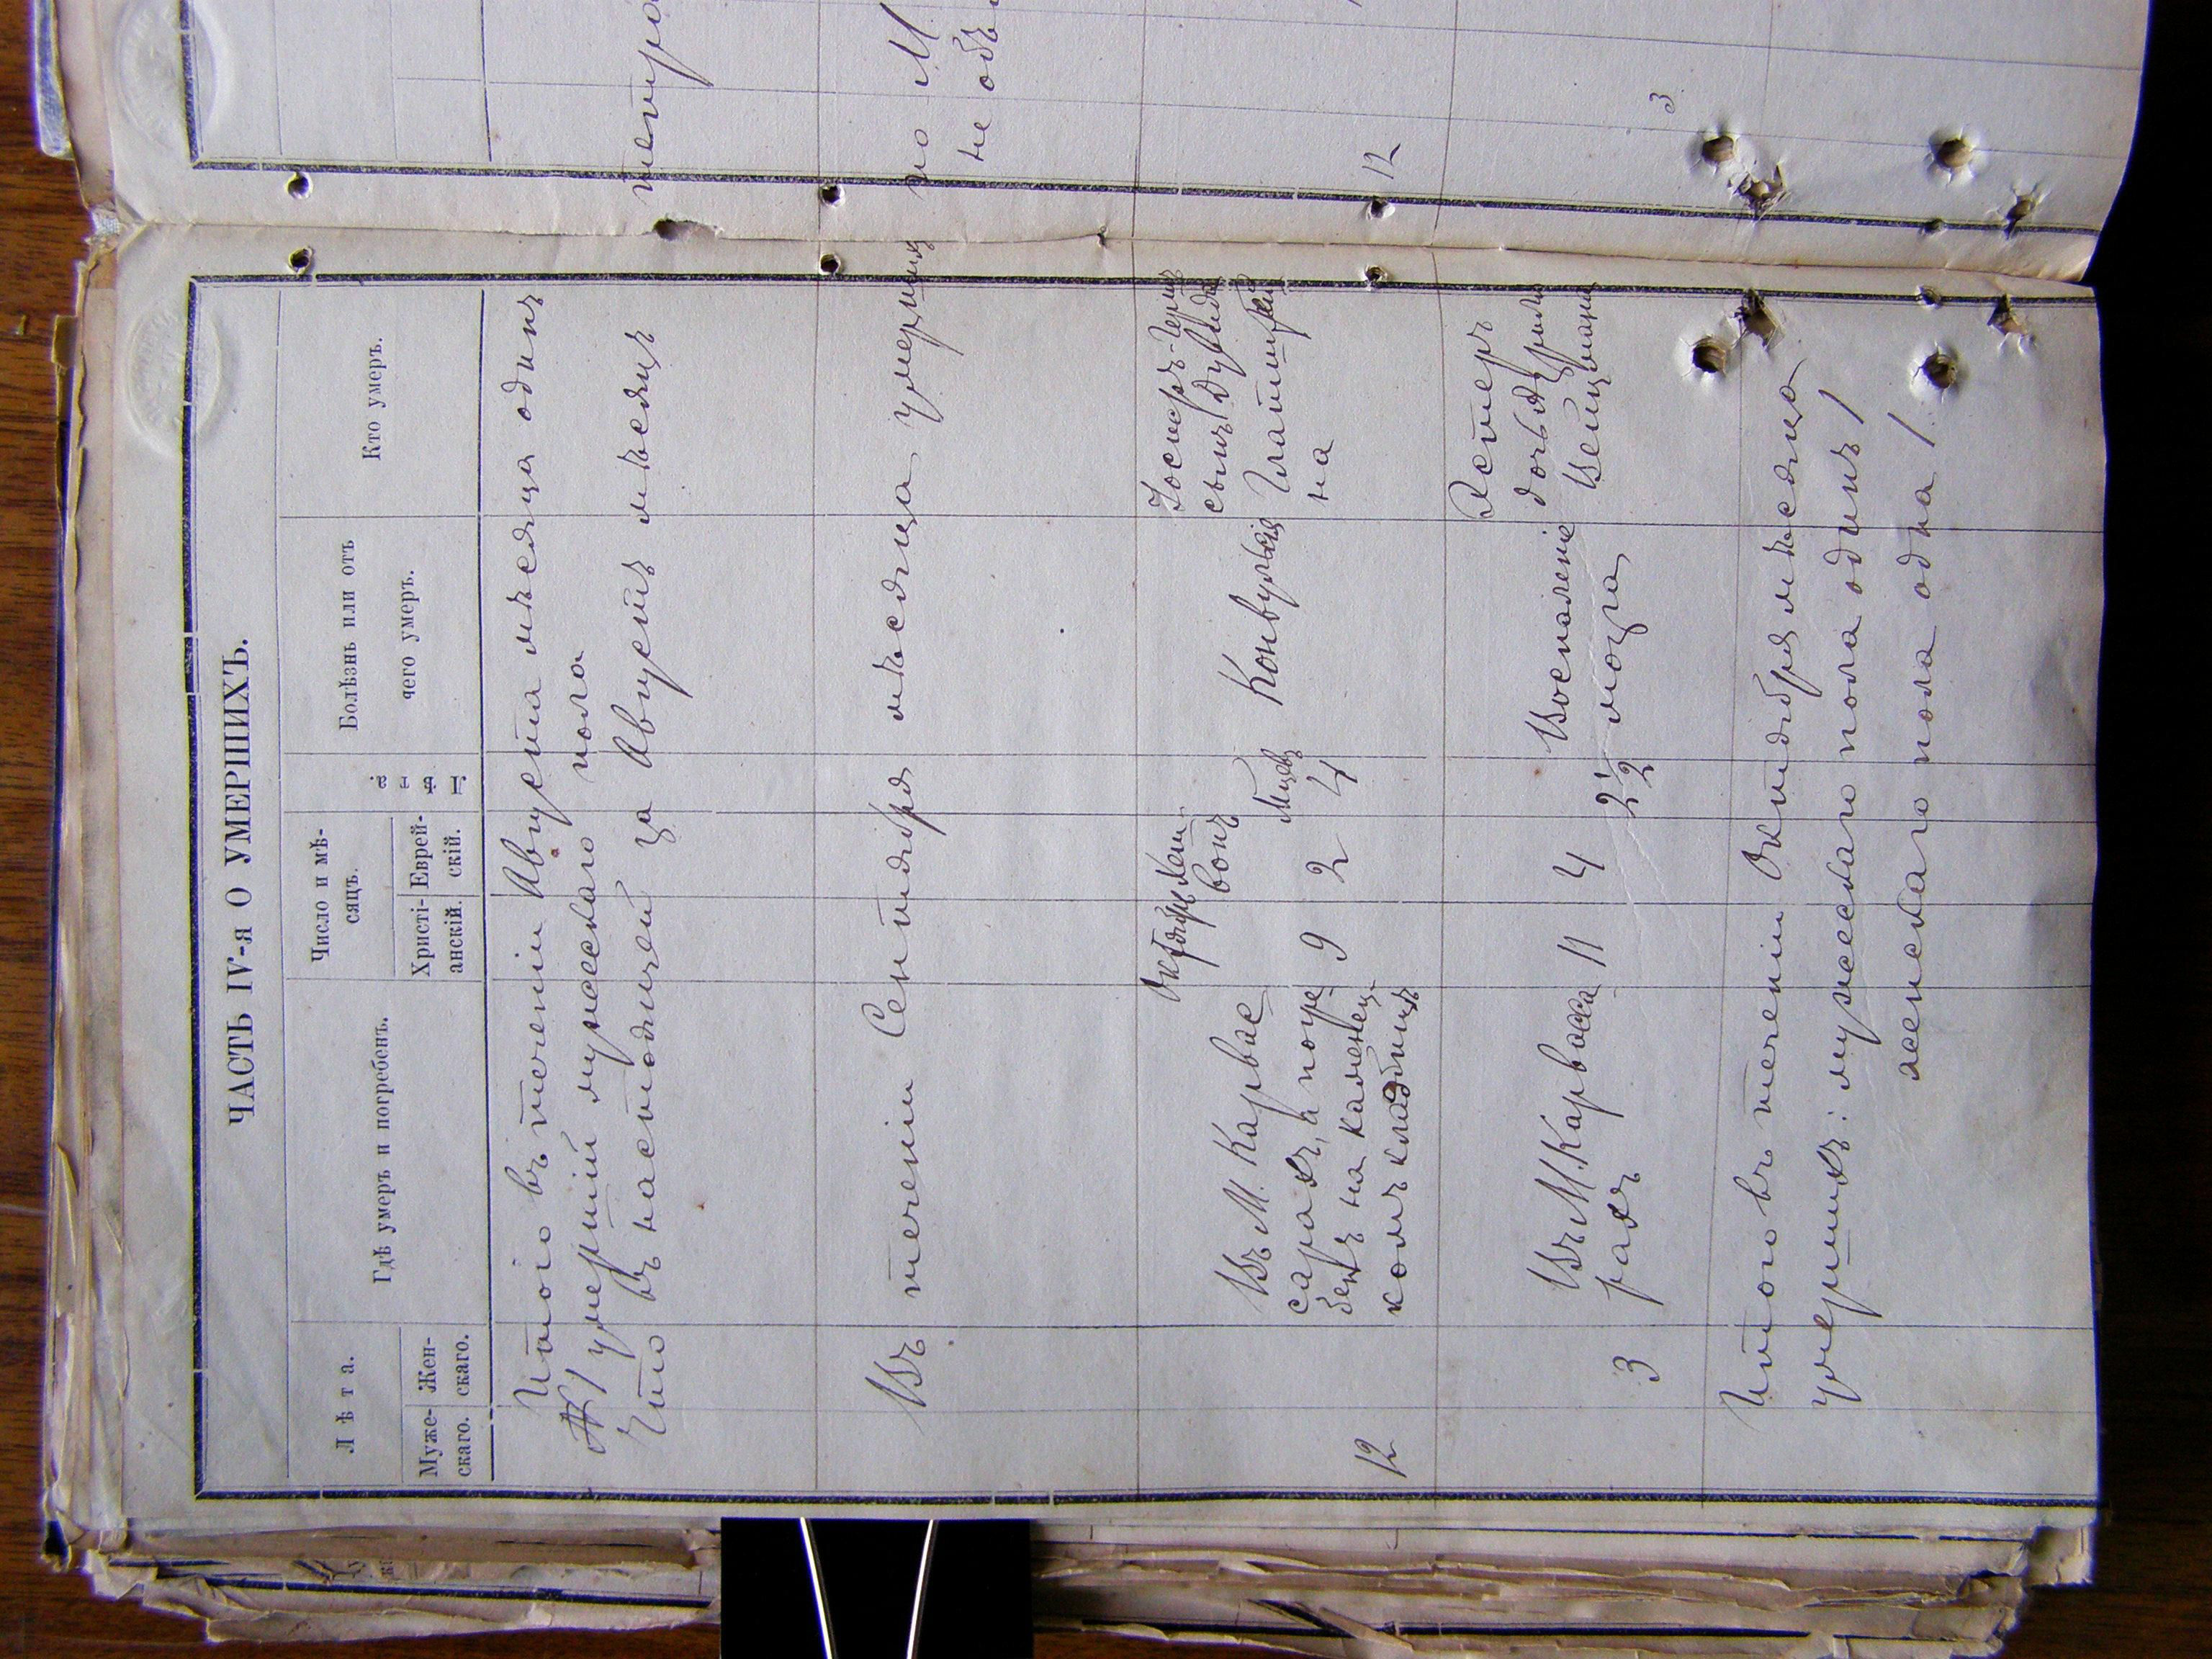 ЧАСТЬ IV-я О УМЕРШИХЪ.
Лѣта.
Муже-
скаго.
Жен-
скаго.
Гдѣ умеръ и погребенъ.
Число и мѣ-
сяцъ.
Христі-
анскій.
Еврей-
скій.
Лѣта.
Болѣзнь или отъ
чего умеръ.
Кто умеръ.
Итого въ теченіи Августа мѣсяца одинъ
1 умершій мужескаго пола
Что въ настоящей за Августъ мѣсяцъ
Въ теченіи Сентября мѣсяца умерших
12
Въ М. Карвас
сарахъ, а погре
бенъ на каменец
комъ кладбищѣ
Октябрь
9
Хеш
вонъ
2
Мѣсяц
4
Конвульсія
Іосифъ
сынъ
на
3
Въ М. Карвасса
рахъ
11
4
2 1/2
Воспаленіе
мозга
Эстеръ
дочь
Вейцмана
Итого въ теченіи Октября мѣсяца
умершихъ: мужескаго пола одинъ 1
женскаго пола одна 1.
по М.
не объ
12
3